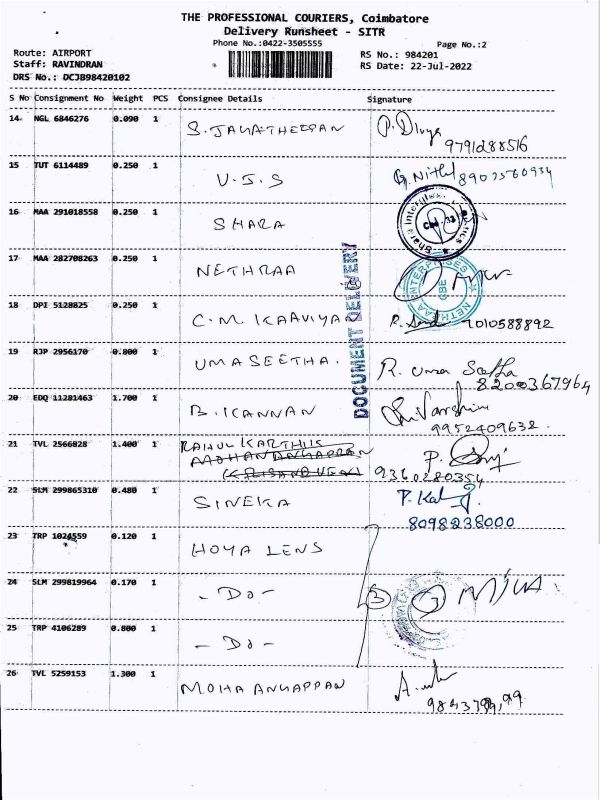 THE PROFESSIONAL COURIERS, Coimbatore
Delivery Runsheet - SITR
Phone No.:0422-3505555
Page No.:2
Route: AIRPORT
RS No.: 984201
Staff: RAVINDRAN
RS Date: 22-Jul-2022
DRS No.: DCJB98420102
S No Consignment No Weight PCS Consignee Details Signature
14 NGL 6846276 0.090 1 S. JAYATHEEPAN P. Divya
9791288516
15 TUT 6114489 0.250 1 V.J.S
16 MAA 291018558 0.250 1 SHARA
17 MAA 282708263 0.250 1 NETHRAA
NETHRAA ENTERPRISES CBE
DOCUMENT DELIVERY
18 DPI 5128825 0.250 1 C.M KAAVIYAN 7010588892
19 RJP 2956170 0.800 1 UMASEETHA. R. Uma Seetha
8200367964
20 EDQ 11281463 1.700 1 B. KANNAN
9952409632.
21 TVL 2566828 1.400 1 RAHUL KARTHIK
9360280354
22 SLM 299865310 0.480 1 SINEKA
8098238000
23 TRP 1024559 0.120 1 HOYA LENS
24 SLM 299819964 0.170 1 - Do - 3
25 TRP 4106289 0.800 1 - Do -
26 TVL 5259153 1.300 1 MOHANANGAPPAN